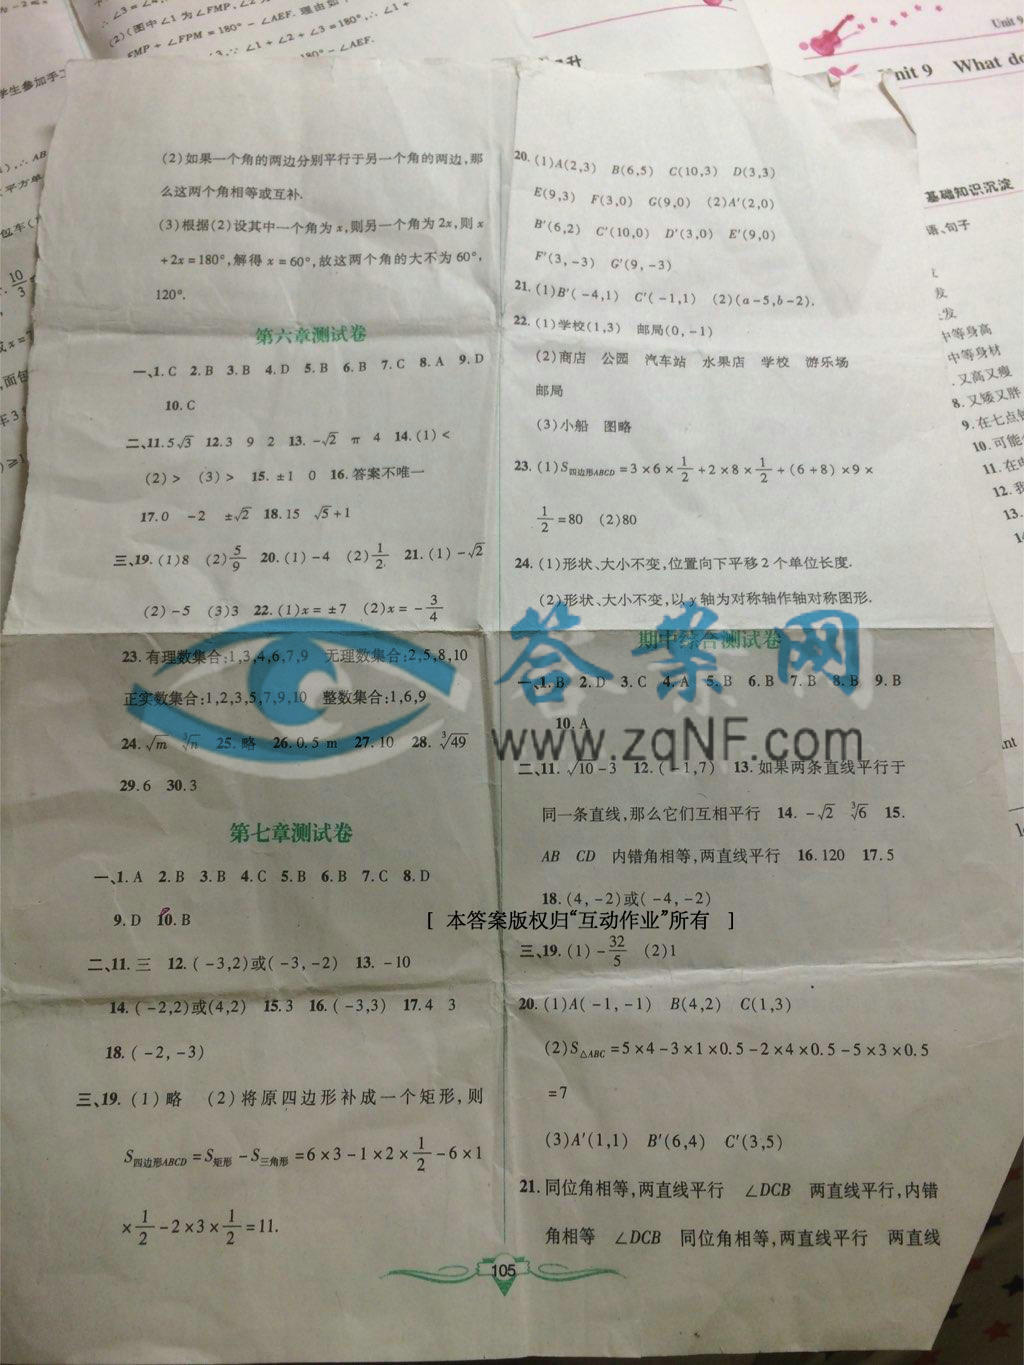 (2)如果一个角的两边分别平行于另一个角的两边,那
么这两个角相等或互补.
(3)根据(2)设其中一个角为x,则另一个角为2x,则x
+2x=180°,解得x=60°,故这两个角的大不为60°,
120°.
第六章测试卷
一、1.C 2.B 3.B 4.D 5.B 6.B 7.C 8.A 9.D
10.C
二、11.5√3 12.3 9 2 13.-√2 π 4 14.(1)<
(2)> (3)> 15.±1 0 16.答案不唯一
17.0 -2 ±√2 18.15 √5+1
三、19.(1)8 (2)5/9 20.(1)-4 (2)1/2. 21.(1)-√2
(2)-5 (3)3 22.(1)x=±7 (2)x=-3/4
23.有理数集合:1,3,4,6,7,9 无理数集合:2,5,8,10
正实数集合:1,2,3,5,7,9,10 整数集合:1,6,9
24.√m ∛n 25.略 26.0.5 m 27.10 28.∛49
29.6 30.3
第七章测试卷
一、1.A 2.B 3.B 4.C 5.B 6.B 7.C 8.D
9.D 10.B
二、11.三 12.(-3,2)或(-3,-2) 13.-10
14.(-2,2)或(4,2) 15.3 16.(-3,3) 17.4 3
18.(-2,-3)
三、19.(1)略 (2)将原四边形补成一个矩形,则
S四边形ABCD=S矩形-S三角形=6×3-1×2×1/2-6×1
×1/2-2×3×1/2=11.
20.(1)A(2,3) B(6,5) C(10,3) D(3,3)
E(9,3) F(3,0) G(9,0) (2)A′(2,0)
B′(6,2) C′(10,0) D′(3,0) E′(9,0)
F′(3,-3) G′(9,-3)
21.(1)B′(-4,1) C′(-1,1) (2)(a-5,b-2).
22.(1)学校(1,3) 邮局(0,-1)
(2)商店 公园 汽车站 水果店 学校 游乐场
邮局
(3)小船 图略
23.(1)S四边形ABCD=3×6×1/2+2×8×1/2+(6+8)×9×
1/2=80 (2)80
24.(1)形状、大小不变,位置向下平移2个单位长度.
(2)形状、大小不变,以y轴为对称轴作轴对称图形.
期中综合测试卷
一、1.B 2.D 3.C 4.A 5.B 6.B 7.B 8.B 9.B
10.A
二、11.√10-3 12.(-1,7) 13.如果两条直线平行于
同一条直线,那么它们互相平行 14.-√2 ∛6 15.
AB CD 内错角相等,两直线平行 16.120 17.5
18.(4,-2)或(-4,-2)
三、19.(1)-32/5 (2)1
20.(1)A(-1,-1) B(4,2) C(1,3)
(2)S△ABC=5×4-3×1×0.5-2×4×0.5-5×3×0.5
=7
(3)A′(1,1) B′(6,4) C′(3,5)
21.同位角相等,两直线平行 ∠DCB 两直线平行,内错
角相等 ∠DCB 同位角相等,两直线平行 两直线
105
答案网
www.zqNF.com
[ 本答案版权归“互动作业”所有 ]
Unit 9
Unit 9 What do
基础知识沉淀
语、句子
中等身高
中等身材
.又高又瘦
8.又矮又胖
9.在七点
10.可能
11.在
12.我
13.
(2)(图中∠1为∠FMP,∠2
FMP+∠FPM=180°-∠AEF.
∠1+∠2+∠3=180°,∴∠1+
180°-∠AEF.
学生参加手工